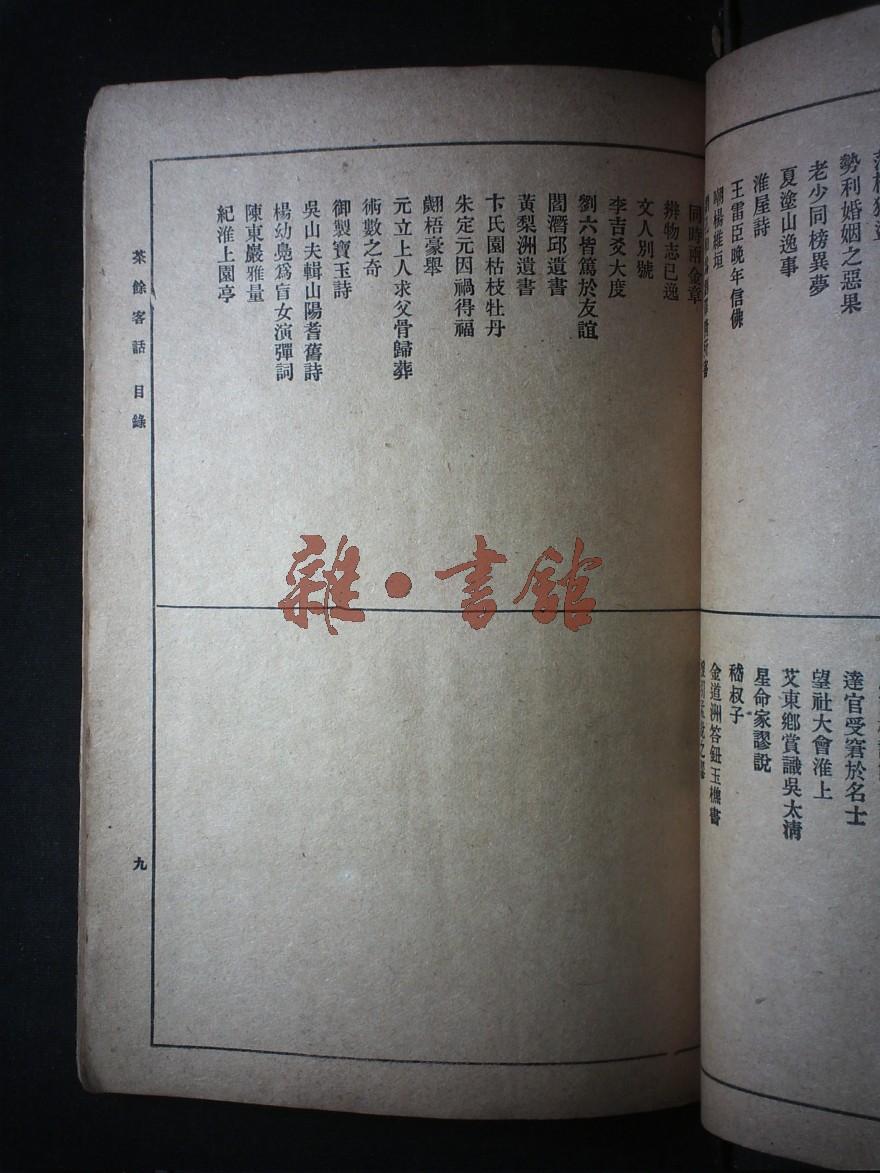 勢利婚姻之惡果
老少同榜異夢
夏塗山逸事
淮屋詩
王雷臣晚年信佛
嘲楊維垣
達官受窘於名士
望社大會淮上
艾東鄉賞識吳太清
星命家謬說
嵇叔子
金道洲答鈕玉樵書
同時兩金章
辨物志已逸
文人別號
李吉爻大度
劉六皆篤於友誼
閻潛邱遺書
黃梨洲遺書
卞氏園枯枝牡丹
朱定元因禍得福
鄭梧豪舉
元立上人求父骨歸葬
術數之奇
御製寶玉詩
吳山夫輯山陽耆舊詩
楊幼鳧爲盲女演彈詞
陳東巖雅量
紀淮上園亭
茶餘客話 目錄
九
雜·書館